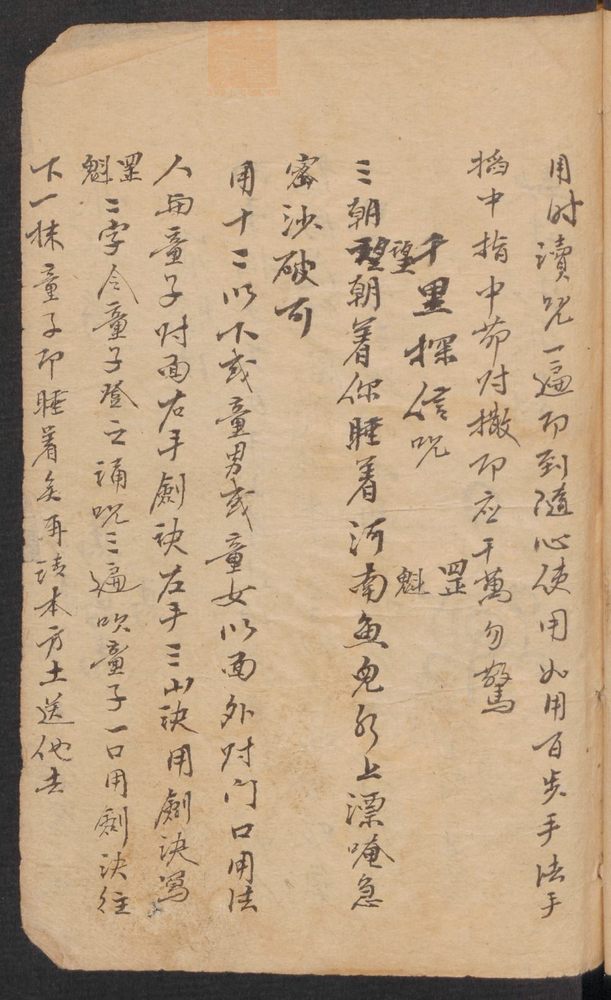 用时讀咒一遍即到隨心使用如用百步手法手
掐中指中节对撒即应千萬勿驚
千里探信咒　罡魁
三朝望朝着你睡着河南魚鬼水上漂唵急
望
密沙破可
用十二以下或童男或童女以面外对门口用法
人与童子对面右手劍訣左手三山訣用劍訣写
罡魁二字令童子登之誦咒三遍吹童子一口用劍訣往
下一抹童子即睡着矣再请本方土送他去